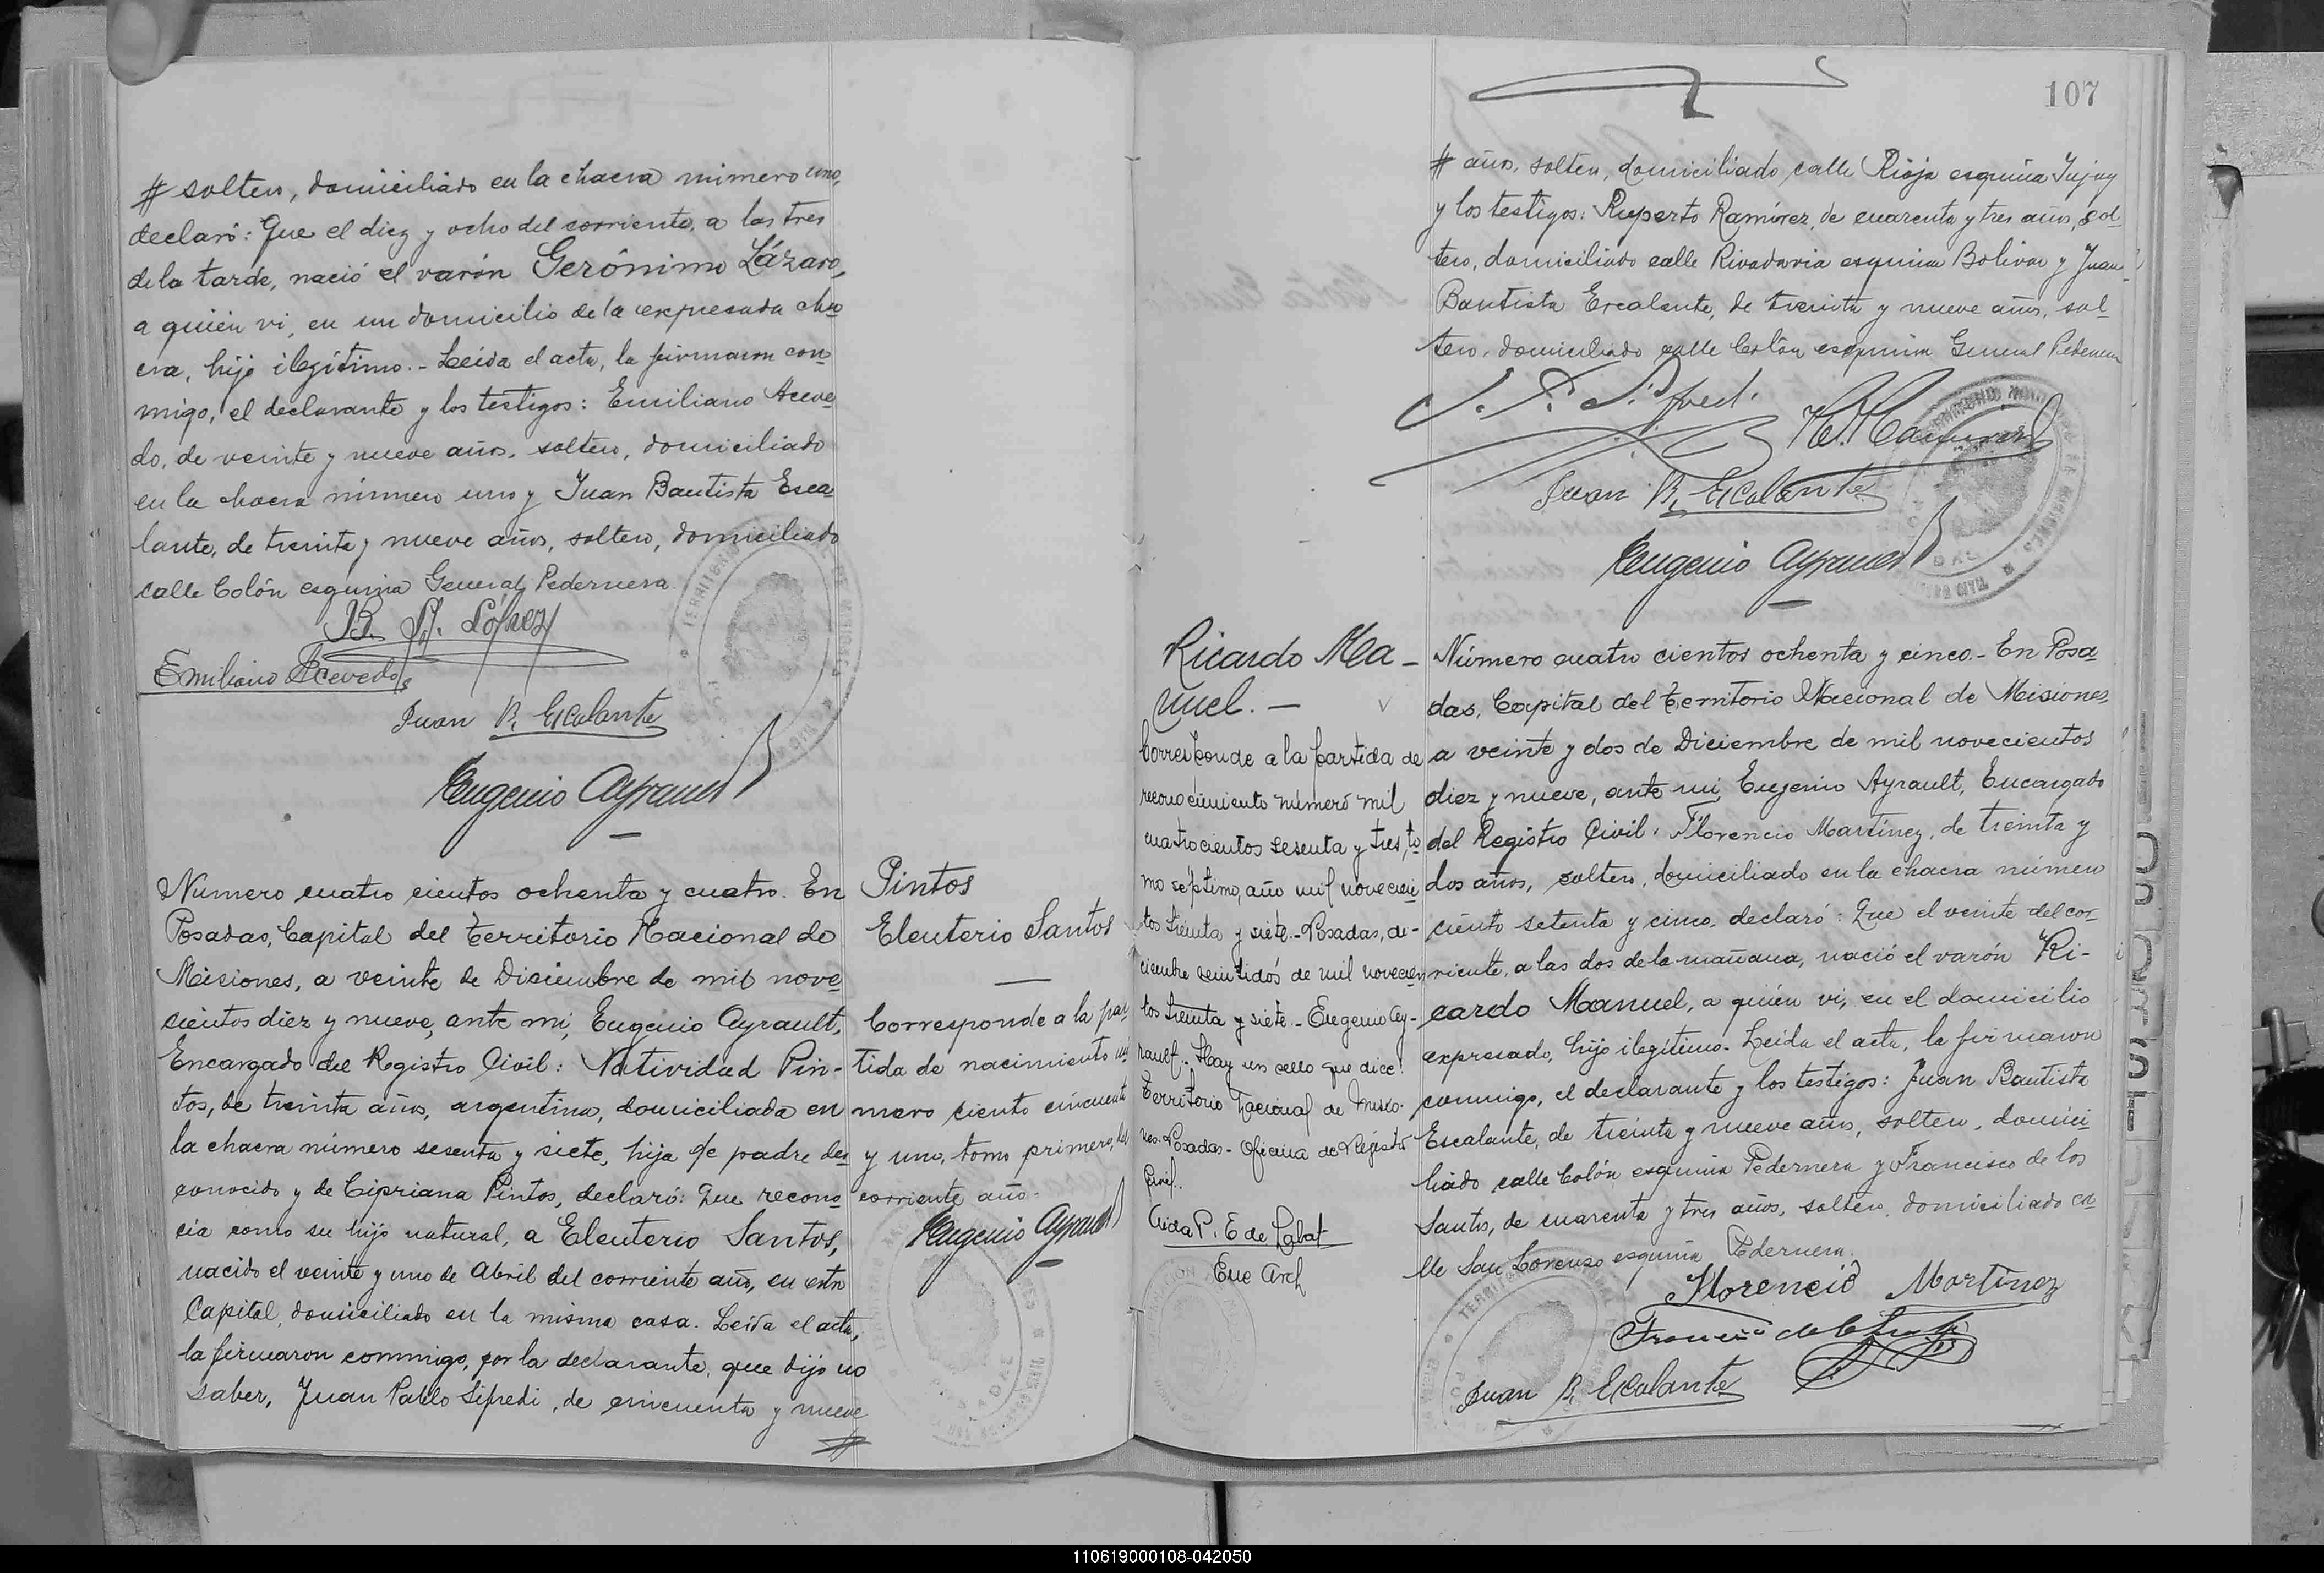 # soltero, domiciliado en la chacra número uno,
declaró: Que el diez y ocho del corriente, a las tres
de la tarde, nació el varón Gerónimo Lázaro,
a quién vi, en un domicilio de la expresada cha
cra, hijo ilegítimo.- Leída el acta, la firmaron con
migo, el declarante y los testigos: Emiliano Aceve
do, de veinte y nueve años, soltero, domiciliado
en la chacra número uno y Juan Bautista Esca
lante, de treinta y nueve años, soltero, domiciliado
calle Colón esquina General Pedernera.
B. López
Emiliano Acevedo
Juan B. Escalante
Eugenio Ayrault
Número cuatro cientos ochenta y cuatro. En
Posadas, Capital del Territorio Nacional de
Misiones, a veinte de Diciembre de mil nove
cientos diez y nueve, ante mi, Eugenio Ayrault,
Encargado del Registro Civil: Natividad Pin-
tos, de treinta años, argentina, domiciliada en
la chacra número sesenta y siete, hija de padre des
conocido y de Cipriana Pintos, declaró: Que recono
cia como su hijo natural, a Eleuterio Santos,
nacido el veinte y uno de Abril del corriente año, en esta
Capital, domiciliado en la misma casa. Leída el acta,
la firmaron conmigo, por la declarante, que dijo no
saber, Juan Pablo Sifredi, de cincuenta y nueve
#
Pintos
Eleuterio Santos
Corresponde a la par
tida de nacimiento nú
mero ciento cincuenta
y uno, tomo primero, del
corriente año.
Eugenio Ayrault
107
# años, soltero, domiciliado calle Rioja esquina Jujuy
y los testigos: Ruperto Ramírez, de cuarenta y tres años, sol
tero, domiciliado calle Rivadavia esquina Bolivar y Juan
Bautista Escalante, de treinta y nueve años, sol
tero, domiciliado calle Colón esquina General Pedernera
R. Ramirez
Juan B. Escalante
Eugenio Ayrault
Ricardo Ma-
nuel.-
Corresponde a la partida de
reconocimiento número mil
cuatrocientos sesenta y tres, to
mo séptimo, año mil novecien
tos treinta y siete.- Posadas, di-
ciembre veintidós de mil novecien
tos treinta y siete.- Eugenio Ay-
rault.- Hay un sello que dice:
Territorio Nacional de Misio-
nes.- Posadas.- Oficina de Registro
Civil.
Aida P. E de Labat
Enc Arch
Número cuatro cientos ochenta y cinco.- En Posa
das, Capital del Territorio Nacional de Misiones,
a veinte y dos de Diciembre de mil novecientos
diez y nueve, ante mi, Eugenio Ayrault, Encargado
del Registro Civil: Florencio Martínez, de treinta y
dos años, soltero, domiciliado en la chacra número
ciento setenta y cinco, declaró: Que el veinte del cor
riente, a las dos de la mañana, nació el varón Ri-
cardo Manuel, a quién vi, en el domicilio
expresado, hijo ilegítimo. Leída el acta, la firmaron
conmigo, el declarante y los testigos: Juan Bautista
Escalante, de treinta y nueve años, soltero, domici
liado calle Colón esquina Pedernera y Francisco de los
Santos, de cuarenta y tres años, soltero, domiciliado ca
lle San Lorenzo esquina Pedernera.
Florencio Martínez
Francisco de los Santos
Juan B. Escalante
110619000108-042050